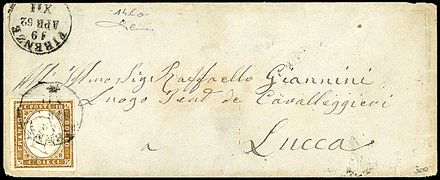 1460
FIRENZE
19
APR 62
XII
All' Illmo Sig. Raffaello Giannini
Luogo Ten.t de Cavalleggieri
a Lucca
FRANCO
C. POSTE 10
BOLLO
C. DIECI
300